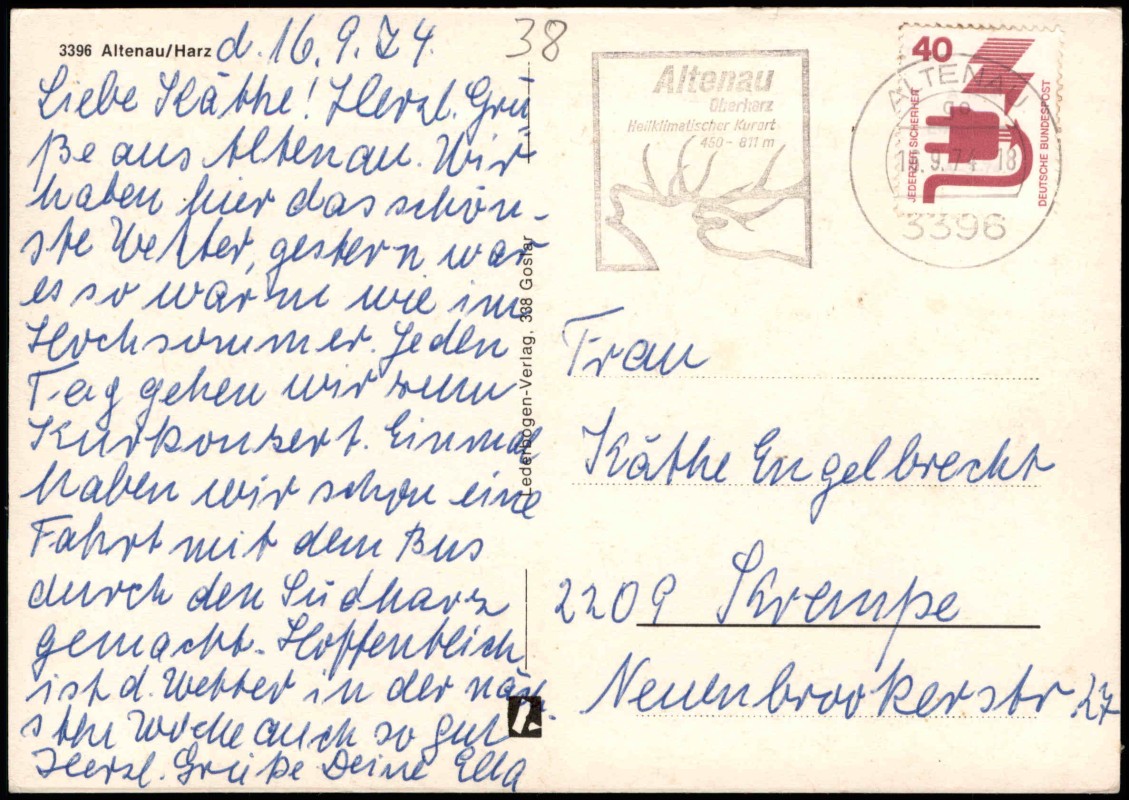 3396 Altenau/Harz d. 16.9.74.
Liebe Käthe! Herzl. Grü-
ße aus Altenau. Wir
haben hier das schön-
ste Wetter, gestern war
es so warm wie im
Hochsommer. Jeden
Tag gehen wir zum
Kurkonzert. Einmal
haben wir schon eine
Fahrt mit dem Bus
durch den Südharz
gemacht. Hoffentlich
ist d. Wetter in der näch-
sten Woche auch so gut
Herzl. Grüße Deine Ella
Lederbogen-Verlag, 338 Goslar
38
Altenau
Oberharz
Heilklimatischer Kurort
450 - 811 m
ALTENAU
.9.74 18
3396
40
JEDERZEIT SICHERHEIT
DEUTSCHE BUNDESPOST
Frau
Käthe Engelbrecht
2209 Krempe
Neuenbrookerstr. 27